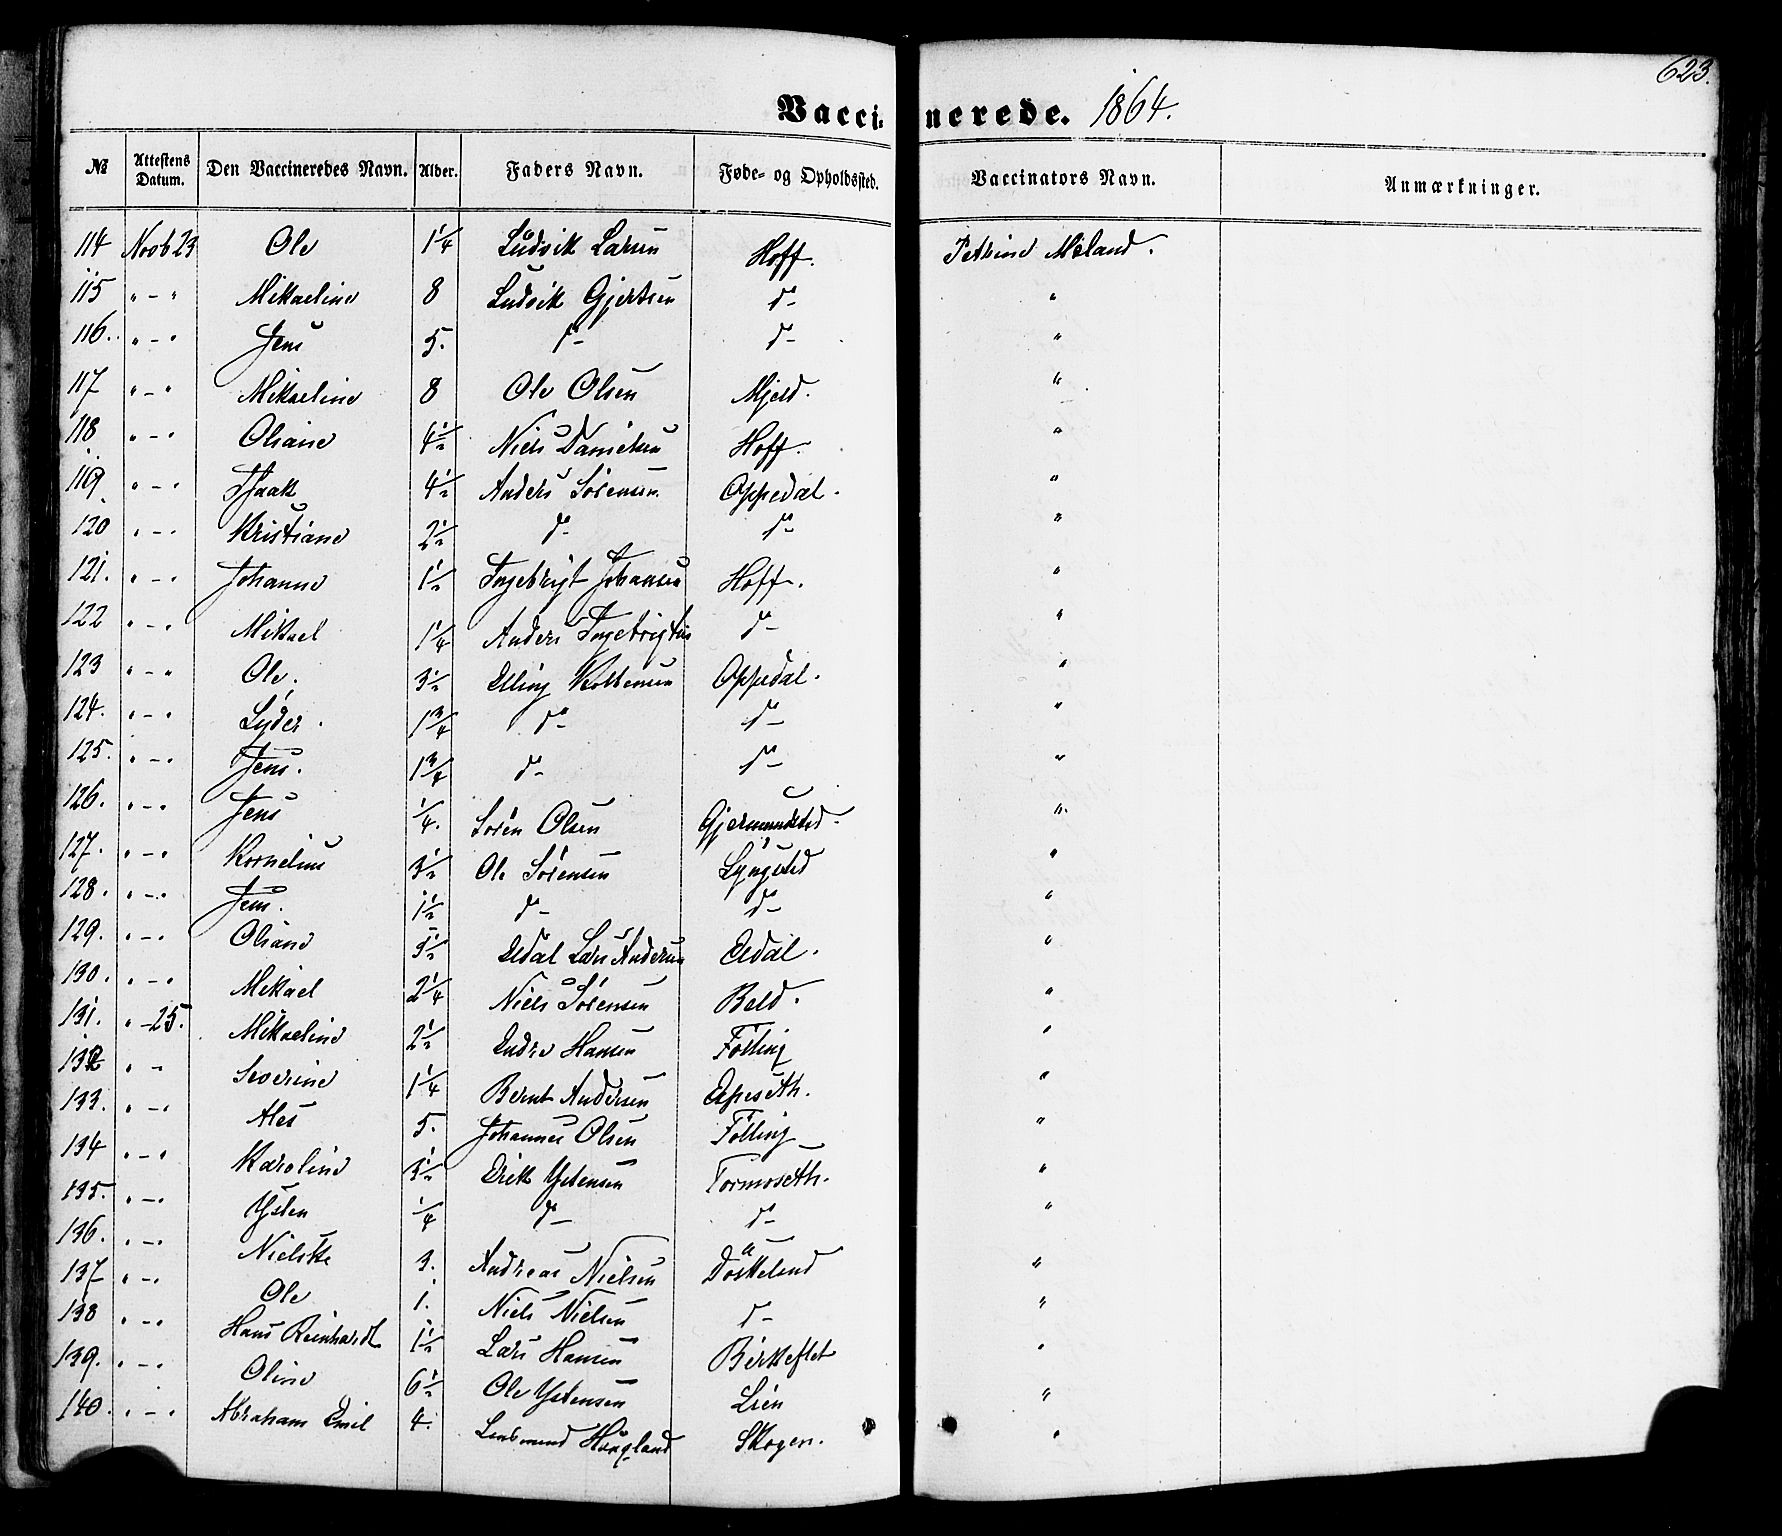 623.
Vaccinerede. 1864.
№ | Attestens Datum. | Den Vaccineredes Navn. | Alder. | Faders Navn. | Føde- og Opholdssted. | Vaccinators Navn. | Anmærkninger.
114 | Novb 23 | Ole | 1 1/4 | Ludvik Larsen | Hoff. | Petrine Mæland.
115 | " - " | Mikaeline | 8 | Ludvik Gjertsen | do- | "
116. | " - " | Jens | 5. | do- | do- | "
117 | " - " | Mikaeline | 8 | Ole Olsen | Mjeld. | "
118 | " - " | Oliane | 4 1/2 | Niels Danielsen | Hoff. | "
119 | " - " | Isaak | 4 1/2 | Anders Sörensen | Oppedal. | "
120 | " - " | Kristiane | 2 1/2 | do- | do- | "
121. | " - " | Johanne | 1 1/2 | Ingebrigt Johansen | Hoff. | "
122 | " - " | Mikael | 1 1/4 | Anders Ingebrigtsen | do- | "
123 | " - " | Ole. | 3 1/2 | Elling | Oppedal. | "
124. | " - " | Lyder. | 1 3/4 | do- | do- | "
125. | " - " | Jens. | 1 3/4 | do- | do- | "
126. | " - " | Jens | 1/4. | Sören Olsen | Gjermundstad. | "
127. | " - " | Kornelius | 3 1/2 | Ole Sörensen | Lyngstad | "
128. | " - " | Jens. | 1 1/2 | do- | do- | "
129. | " - " | Oliane | 5 1/2 | Lars Andersen | | "
130. | " - " | Mikael | 2 1/4 | Niels Sörensen | Bald. | "
131. | " - 25. | Mikaeline | 2 1/2 | Endre Hansen | Fölling | "
132 | " " | Severine | 1 1/4 | Bernt Andersen | Apeseth. | "
133. | " - " | Ales | 5. | Johannes Olsen | Fölling | "
134 | " - " | Karoline | 3 1/2 | Erik Ystensen | Tormoseth. | "
135. | " - " | Ysten | 1/4 | do- | do- | "
136. | " - " | Nielske | 3. | Andreas Nielsen | Döskeland | "
137 | " - " | Ole | 1. | Niels Nielsen | do- | "
138 | " - " | Hans Reinhardt | 1 1/2 | Lars Hansen | Birkeflet | "
139. | " - " | Oline | 6 1/2 | Ole Ystensen | Lien | "
140. | " - " | Abraham Emil | 4. | Lensmand Haugland | Skogen. | "